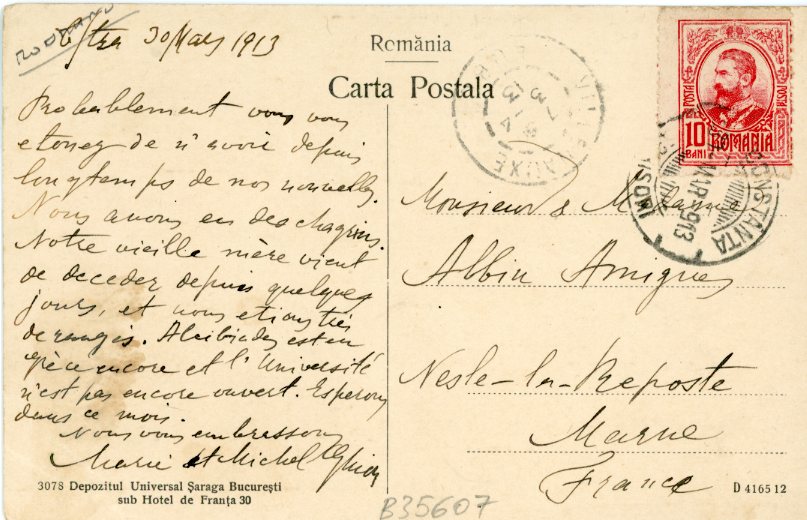 ROUMANO
30 Mars 1913
România
Carta Postala
Probablement vous vous
etonez de n'avoir depuis
longtemps de nos nouvelles.
Nous avons eu des chagrins.
Notre vieille mère vient
de deceder depuis quelques
jours, et nous etions très
derangés. Alcibiades est en
Grèce encore et l'Université
n'est pas encore ouvert. Esperons
dans ce mois.
Nous vous embrassons
Marie et Michel
3078 Depozitul Universal Șaraga București
sub Hotel de Franța 30
POSTA
10
BANI
ROMANIA
CONSTANTA
MAR 913
VILLENAUXE
Monsieur & Madame
Albin Amigues
Nesle-la-Reposte
Marne
France
D 416512
B35607